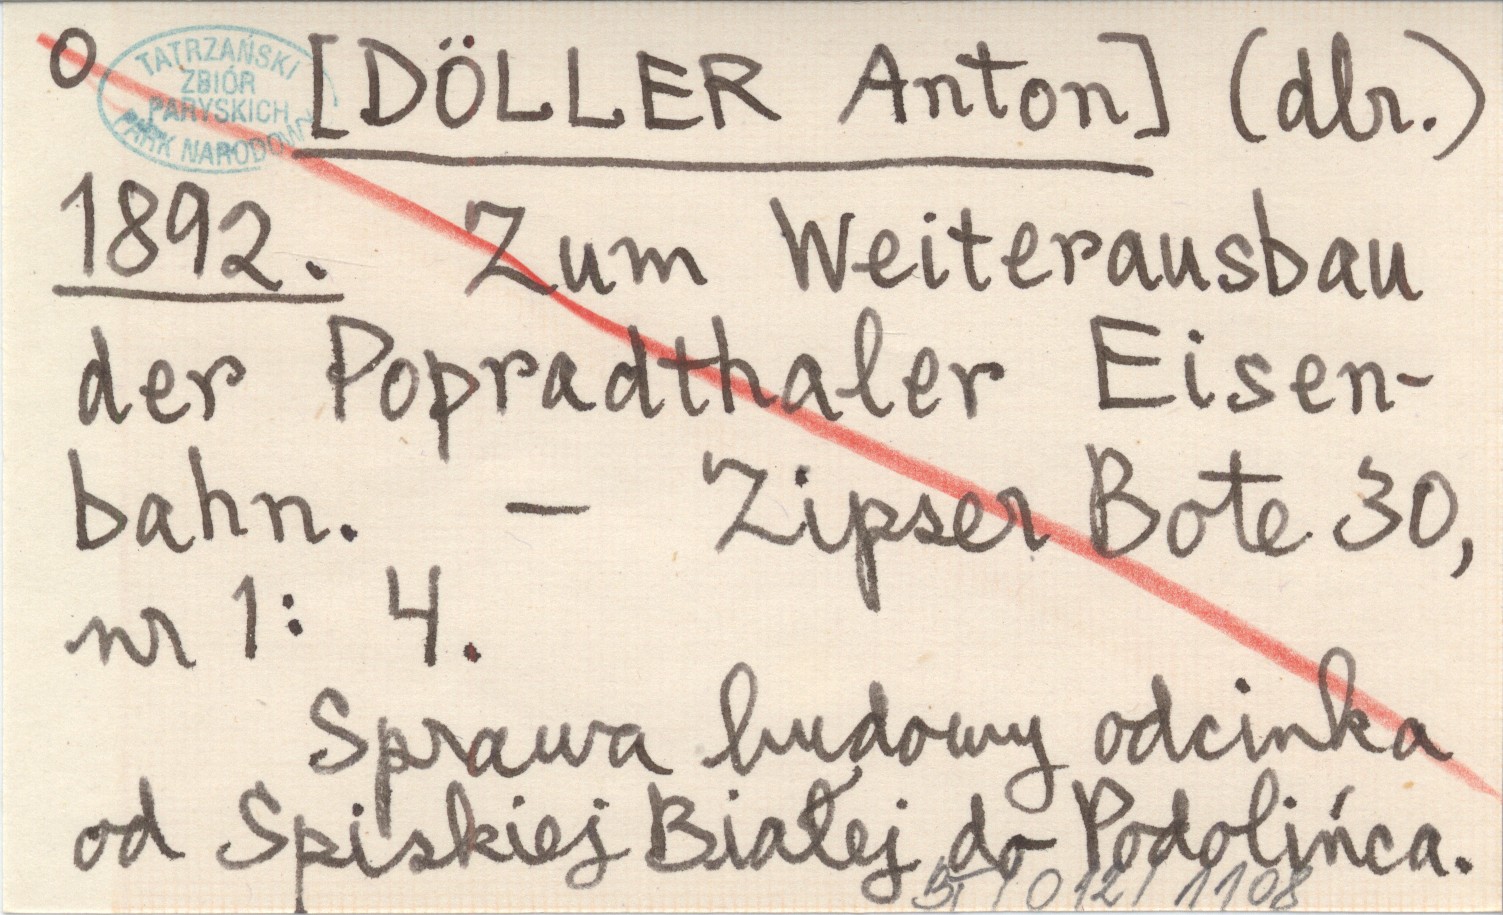 O
TATRZAŃSKI
ZBIÓR
PARYSKICH
PARK NARODOWY
[DÖLLER Anton] (dbr.)
1892. Zum Weiterausbau
der Popradthaler Eisen-
bahn. — Zipser Bote 30,
nr 1: 4.
Sprawa budowy odcinka
od Spiskiej Białej do Podolińca.
/ 012 / 1108